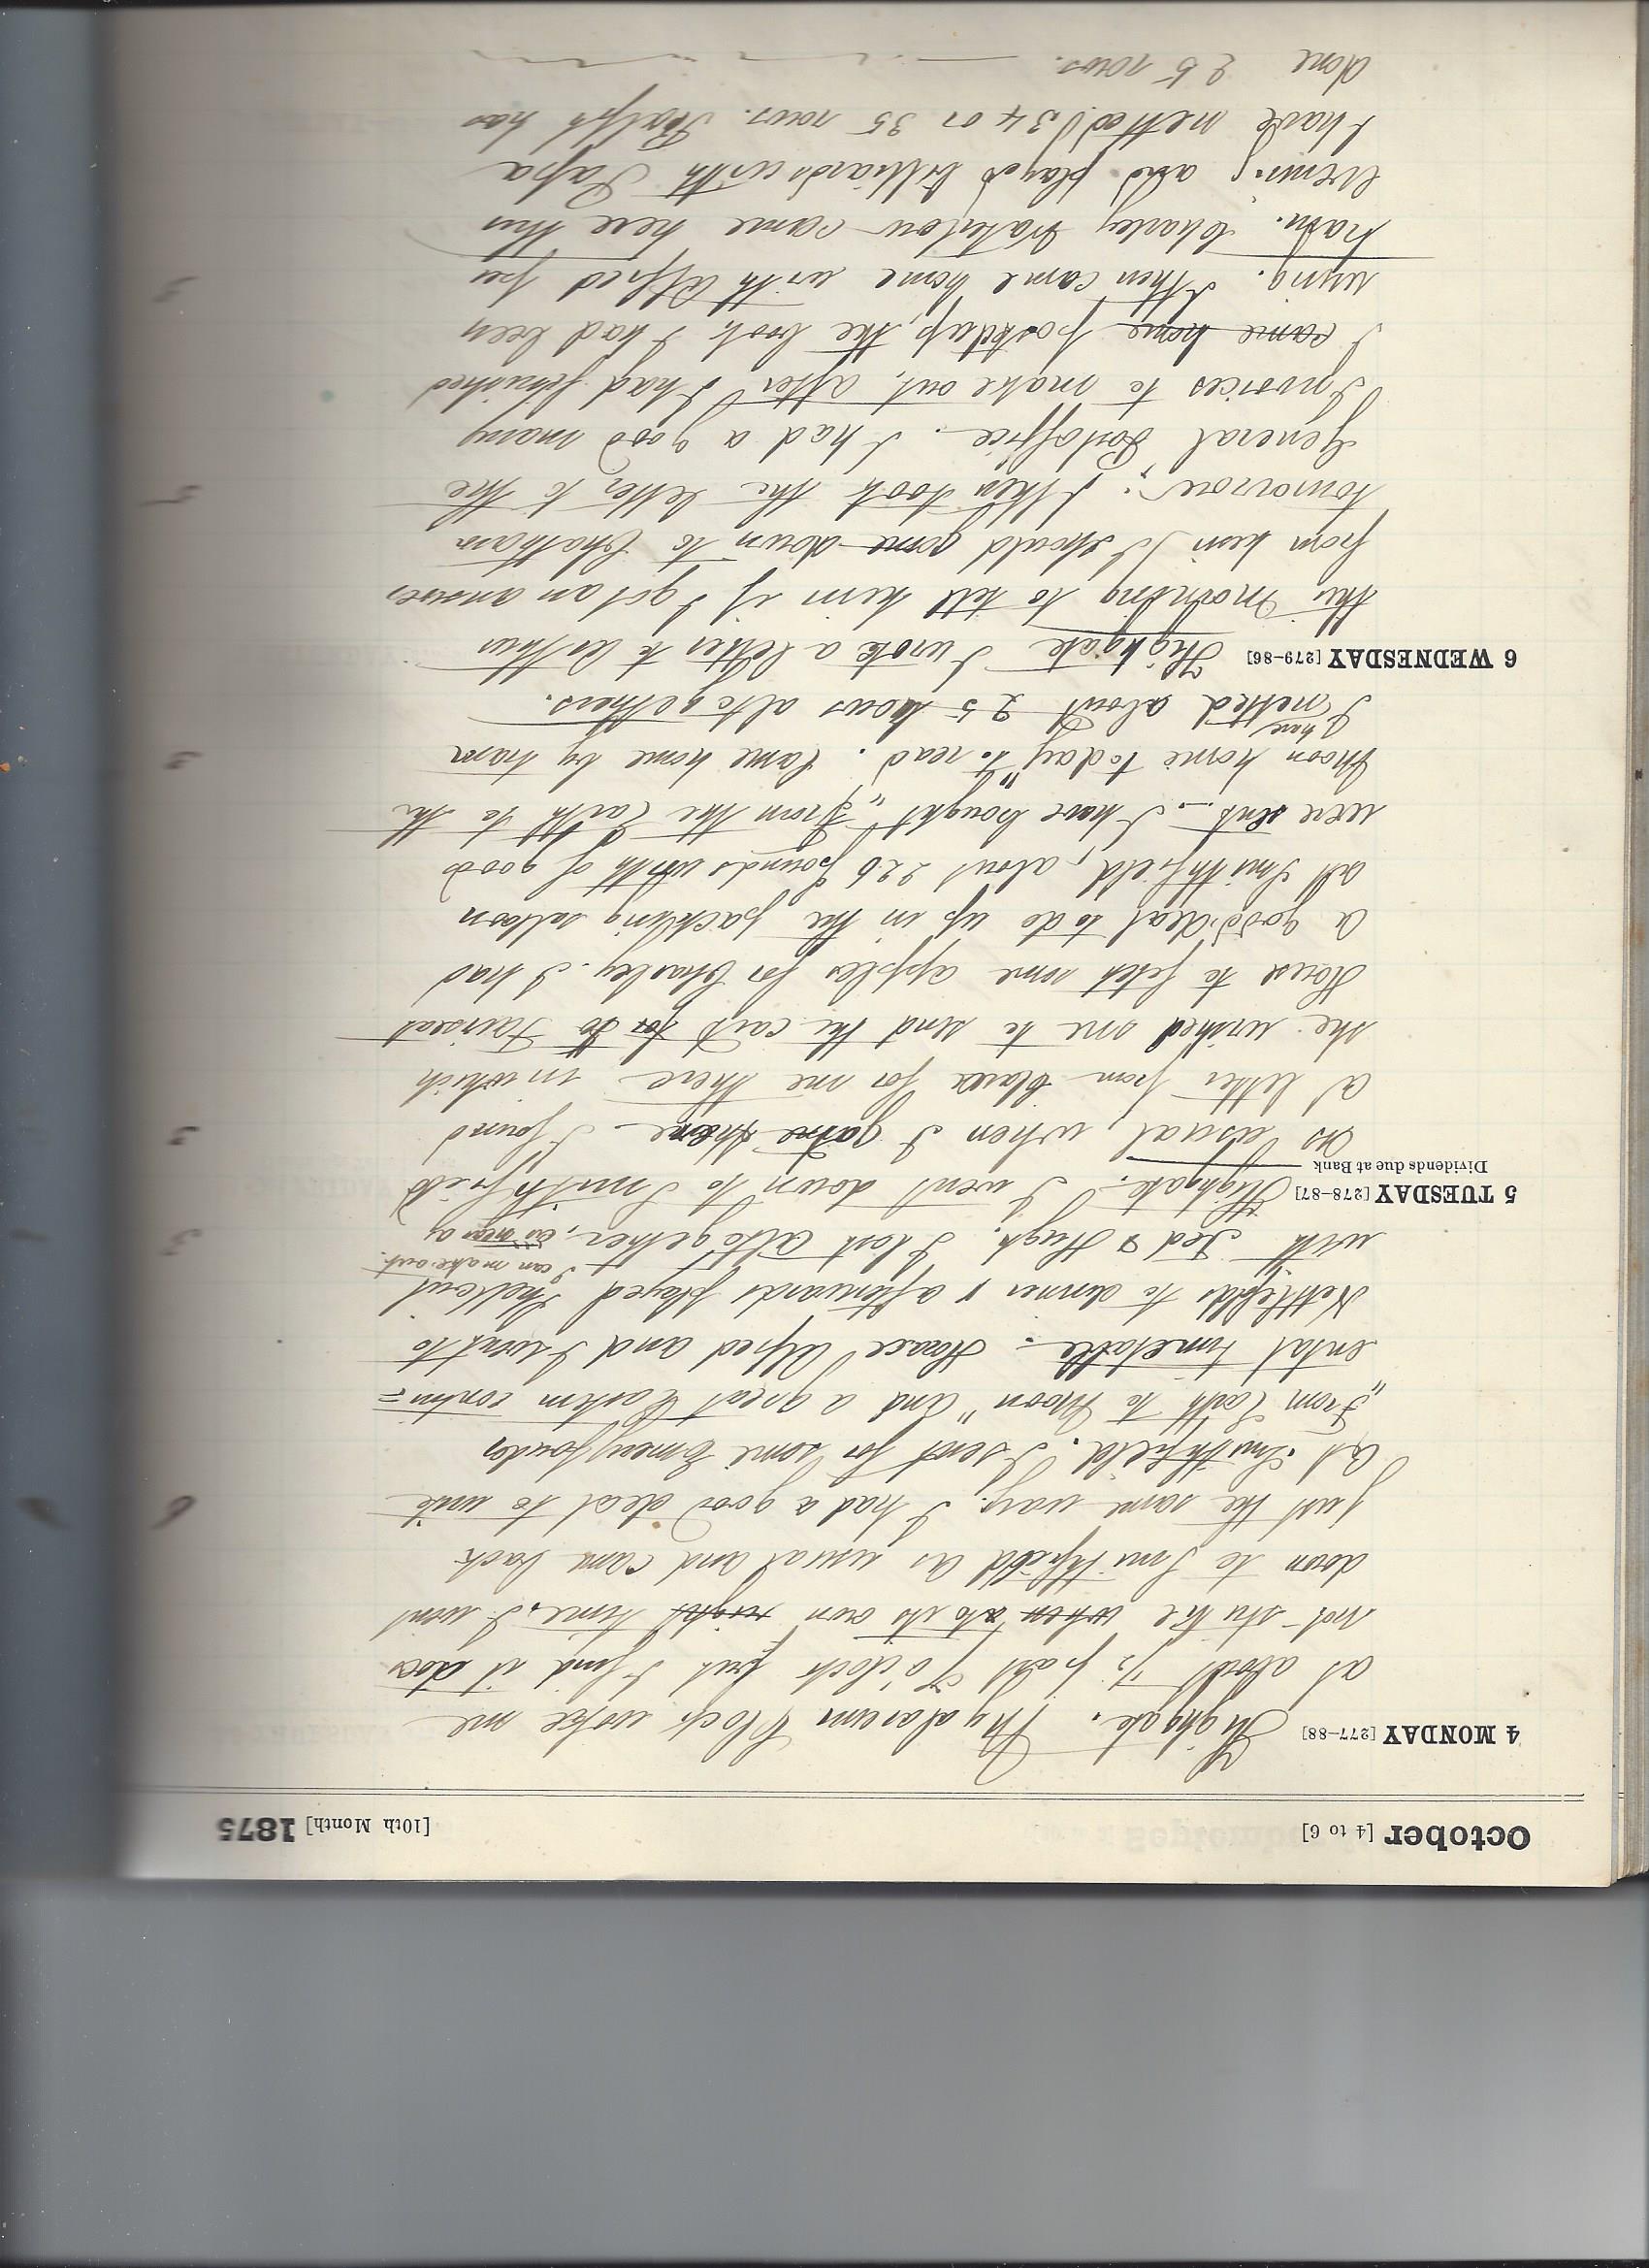 October [4 to 6] [10th Month] 1875
4 MONDAY [277-88] Highgate. My alarum Clock woke me
at about ½ past 7 o'clock but I find it does
not strike when at its own right time. I went
down to Smithfield as usual and came back
just the same way. I had a good deal to write
at Smithfield. I sent for some Emery powder
"From Earth to Moon" and a great Eastern contin=
ental timetable. Horace Alfred and I went to
Nettlefolds to dinner & afterwards played Shellout
with Ted & Hugh. I lost altogether, as near as
I can make out.
5 TUESDAY [278-87] Highgate. I went down to Smithfield
Dividends due at Bank
as usual, when I came there I found
a letter from Clara for me there in which
she wished me to send the cart for to Fairseat
House to fetch some apples for Charley. I had
a good deal to do up in the packing saloon
at Smithfield, about 226 pounds worth of goods
were sent. I have bought "From the Earth to the
Moon home today" to read. Came home by tram
I have netted about 25 rows altogethers.
6 WEDNESDAY [279-86] Highgate I wrote a letter to Arthur
this morning to tell him if I got an answer
from him I should come down to Chatham
tomorrow; I then took the letter to the
General Postoffice. I had a good many
Invoices to make out, after I had finished
I came home posted up the book I had been
using. I then came home with Alfred per
tram. Charley Waterlow came here this
Evening and played billiards with Papa
I have netted 34 or 35 rows. Ralph has
done 26 rows.